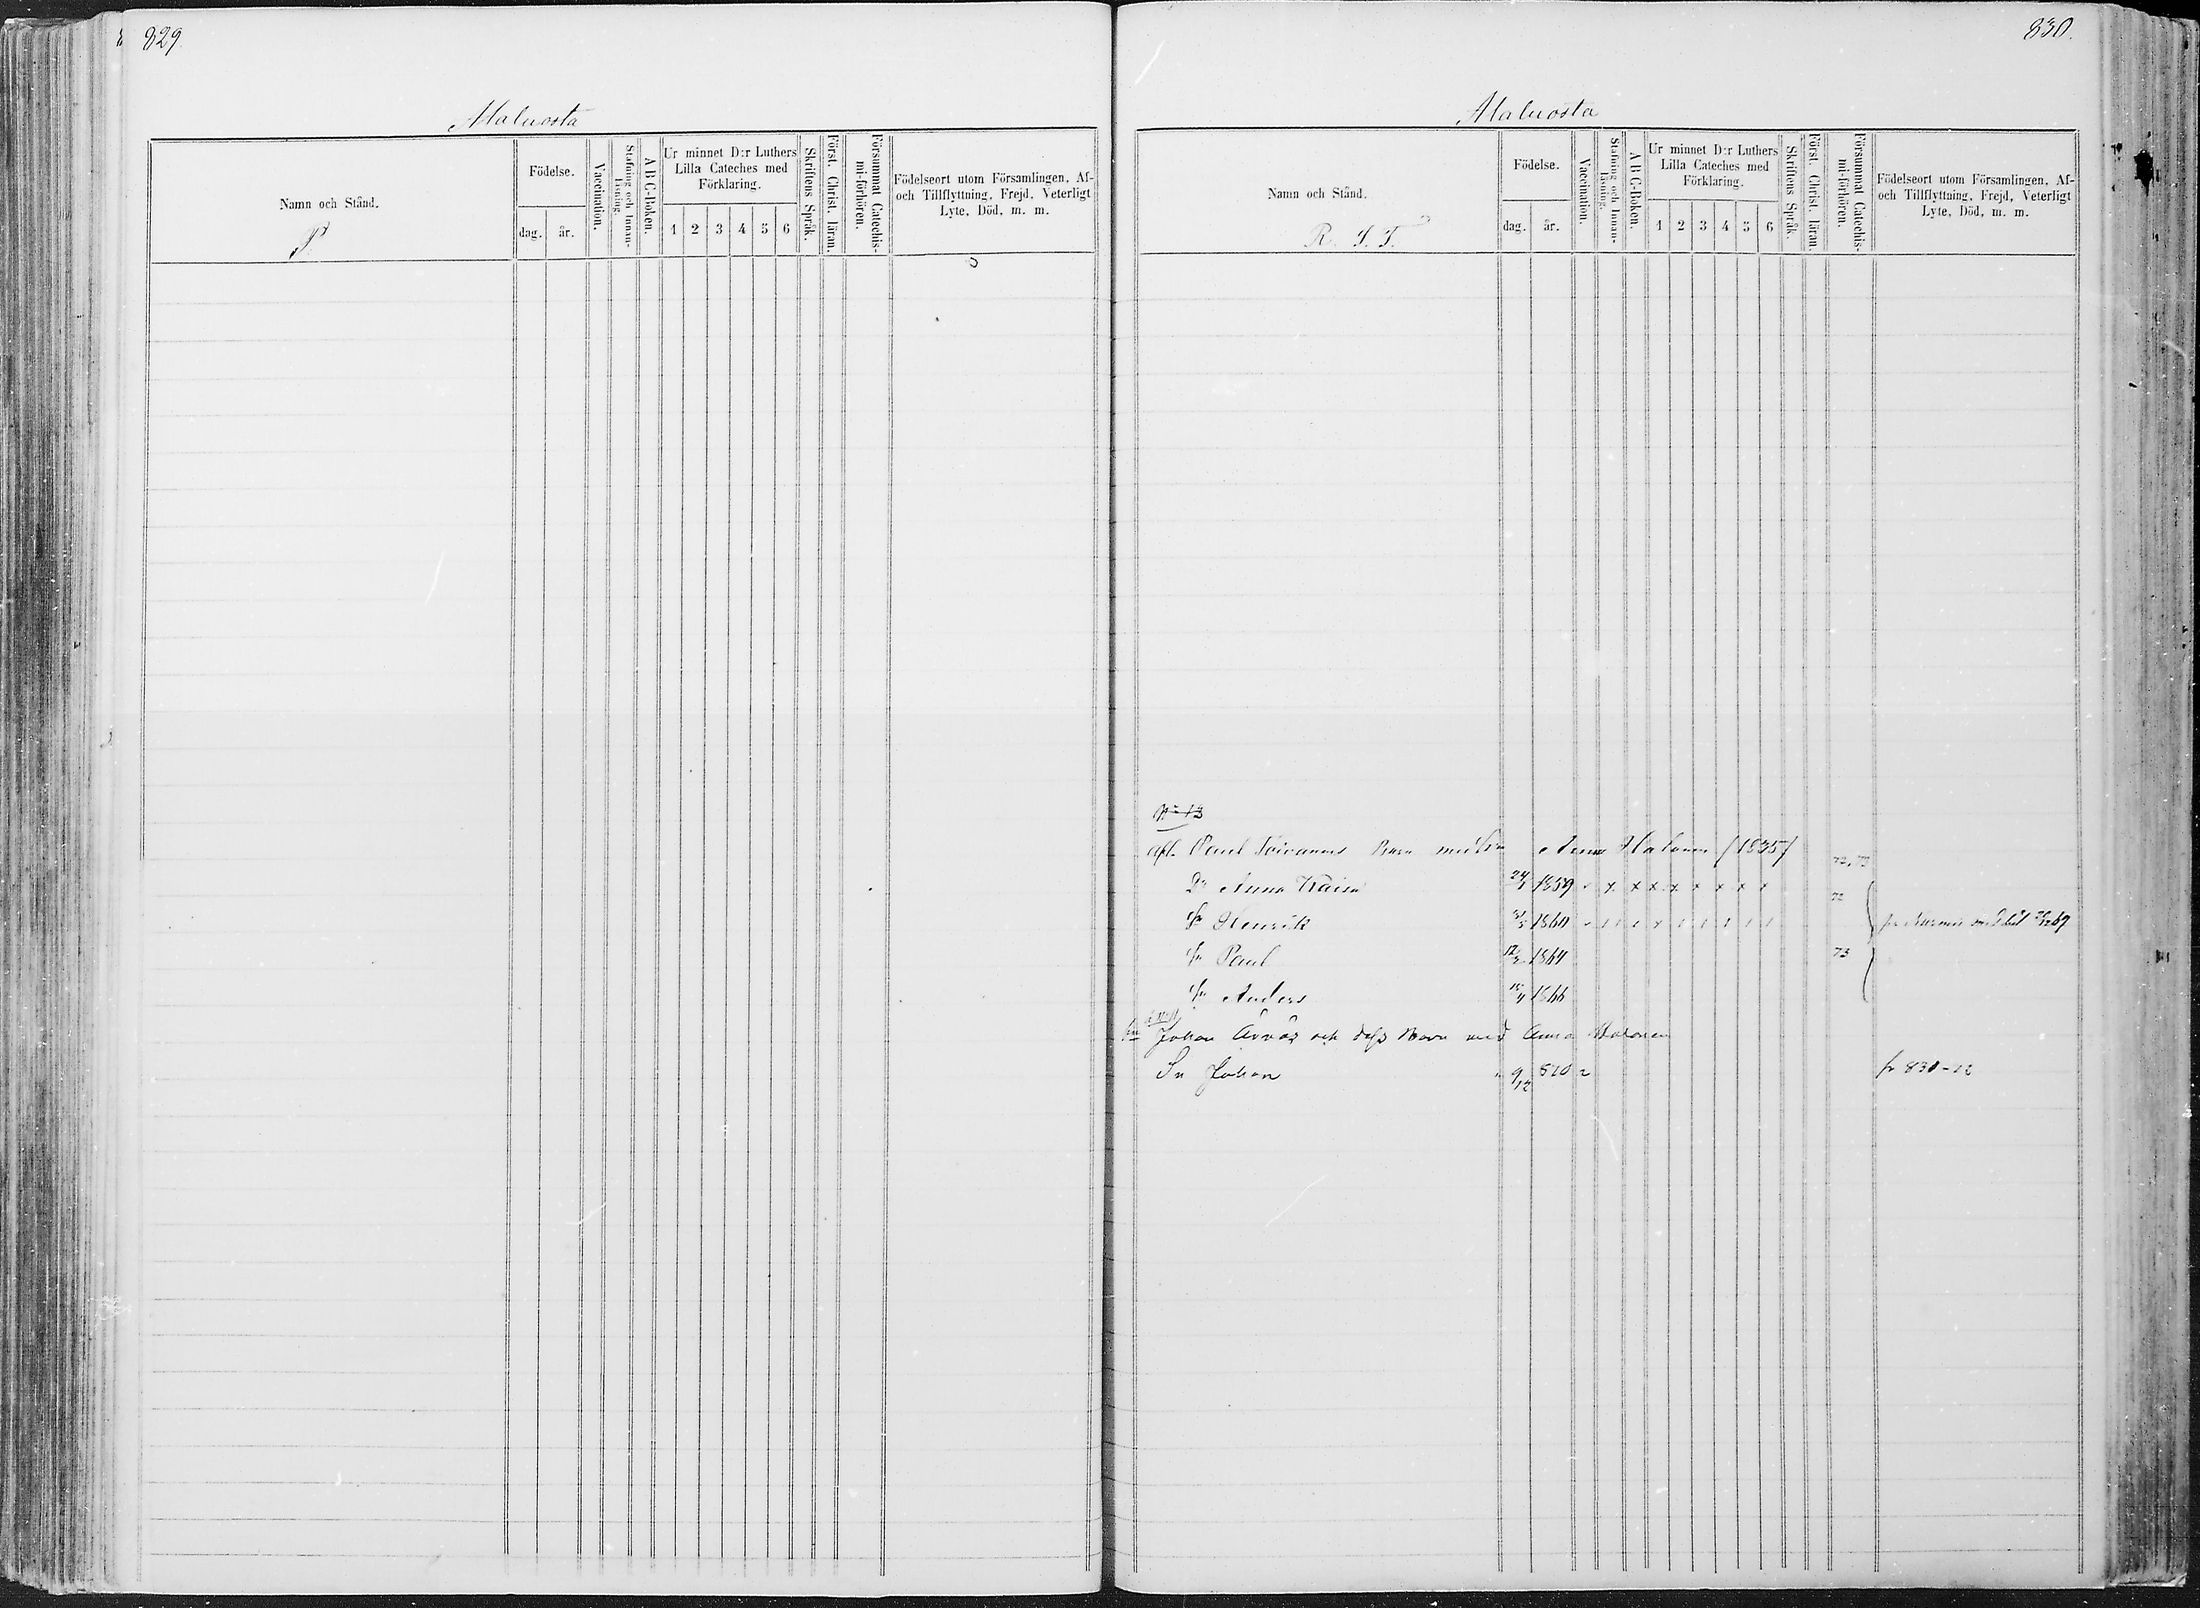 829
Maluosta
Namn och Stånd.
P.
Födelse.
dag.
år.
Vaccination.
Stafning och Innan-läsning.
A B C-Boken.
Ur minnet D:r Luthers
Lilla Cateches med
Förklaring.
1 2 3 4 5 6
Skriftens Språk.
Först. Christ. läran.
Försummat Catechis-
mi-förhören.
Födelseort utom Församlingen, Af-
och Tillflyttning, Frejd, Veterligt
Lyte, Död, m. m.
830.
Maluosta
Namn och Stånd.
R. S. T.
Födelse.
dag.
år.
Vaccination.
Stafning och Innan-läsning.
A B C-Boken.
Ur minnet D:r Luthers
Lilla Cateches med
Förklaring.
1 2 3 4 5 6
Skriftens Språk.
Först. Christ. läran.
Försummat Catechis-
mi-förhören.
Födelseort utom Församlingen, Af-
och Tillflyttning, Frejd, Veterligt
Lyte, Död, m. m.
No 13
Afl. Paul Toivanens Barn Anna Halonen (1835) 72, 73
Dr Anna Kaisa 24/1 1859 x x x x x x x x 72
Sn Henrik 1860
Sn Paul 12/2 1864 73
Sn Anders 1866
Johan och dess Barn med Anna Halonen
Sn Johan 9/12 fr 830-12